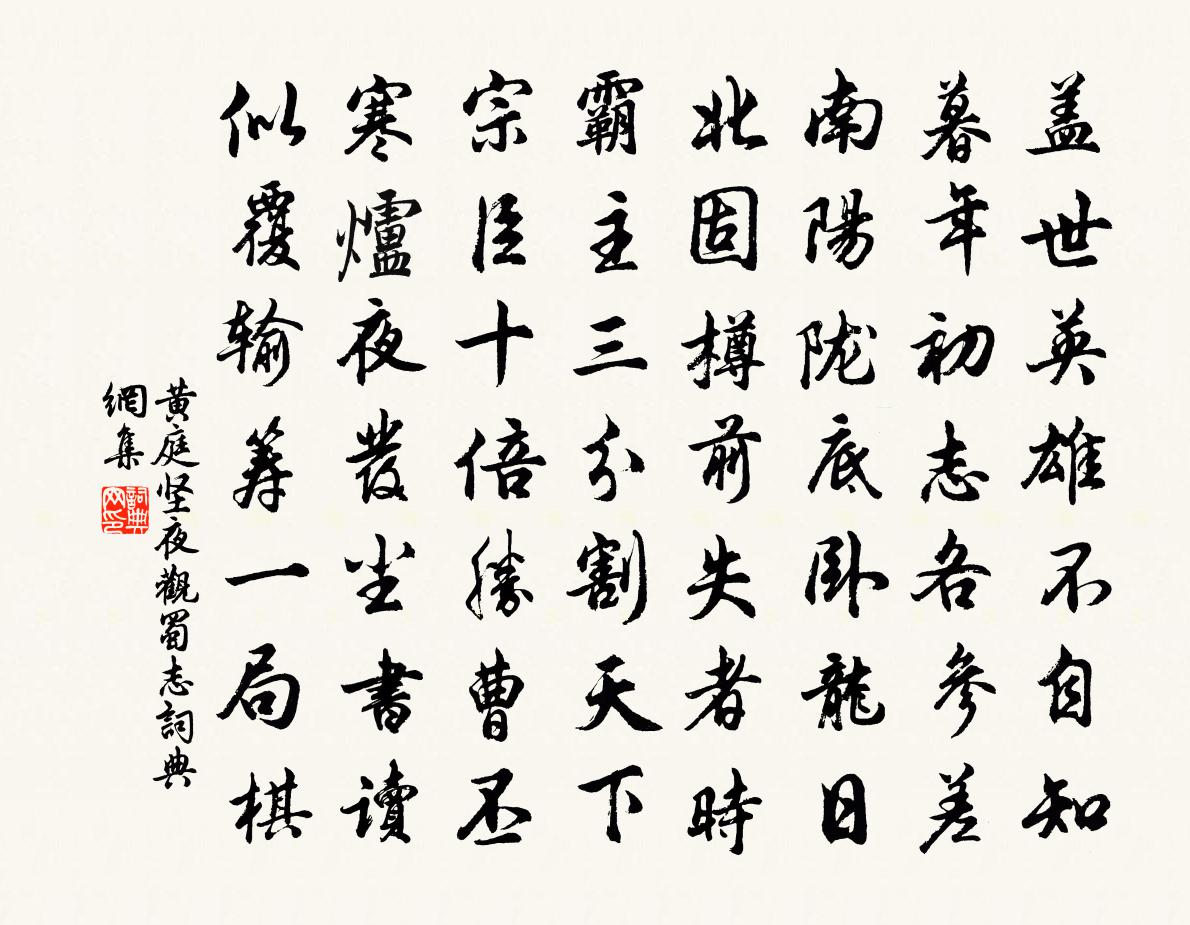 盖世英雄不自知
暮年初志各參差
南陽陇底卧龍日
北固樽前失者時
霸主三分割天下
宗臣十倍勝曹丕
寒爐夜發坐書讀
似覆输筹一局棋
黄庭坚夜觀蜀志詞典
網集
詞典
网印